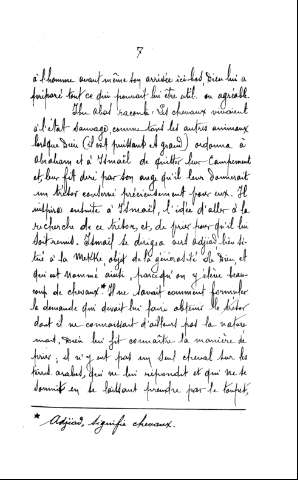 7
à l'homme avant même son arrivée ici-bas, Dieu lui a
préparé tout ce qui pouvait lui être utile ou agréable.
Ibn Abas raconte: Les chevaux vivaient
à l'état sauvage, comme tous les autres animaux
lorsque Dieu (il est puissant et grand) ordonna à
Abraham et à Ismaïl de quitter leur campement
et leur fit dire par son ange qu'il leur donnerait
un trésor conservé précieusement pour eux. Il
inspira ensuite à Ismaïl, l'idée d'aller à la
recherche de ce trésor, et de prier pour qu'il lui
soit remis. Ismaïl se dirigea vers Adjiad lieu si-
tué à la Mekke, objet de la générosité de Dieu, et
qui est nommé ainsi parce qu'on y élève beau-
coup de chevaux* Il ne savait comment formuler
la demande qui devait lui faire obtenir le trésor
dont il ne connaissait d'ailleurs pas la nature
mais, Dieu lui fit connaître la manière de
prier, il n'y eut pas un seul cheval sur les
terres arabes, qui ne lui répondit et qui ne se
soumit en se laissant prendre par le toupet,
* Adjiad, signifie chevaux.